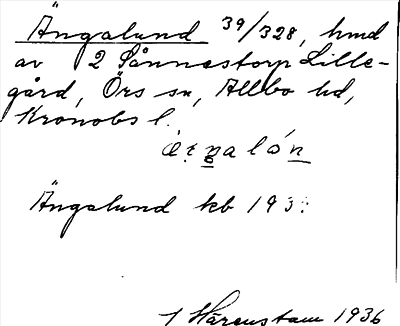 Ängalund 39/328, hmd
av 2 Sånnestorp Lille-
gård, Örs sn, Allbo hd,
Kronobs l.
Ängalund kb 193
J Härenstam 1936